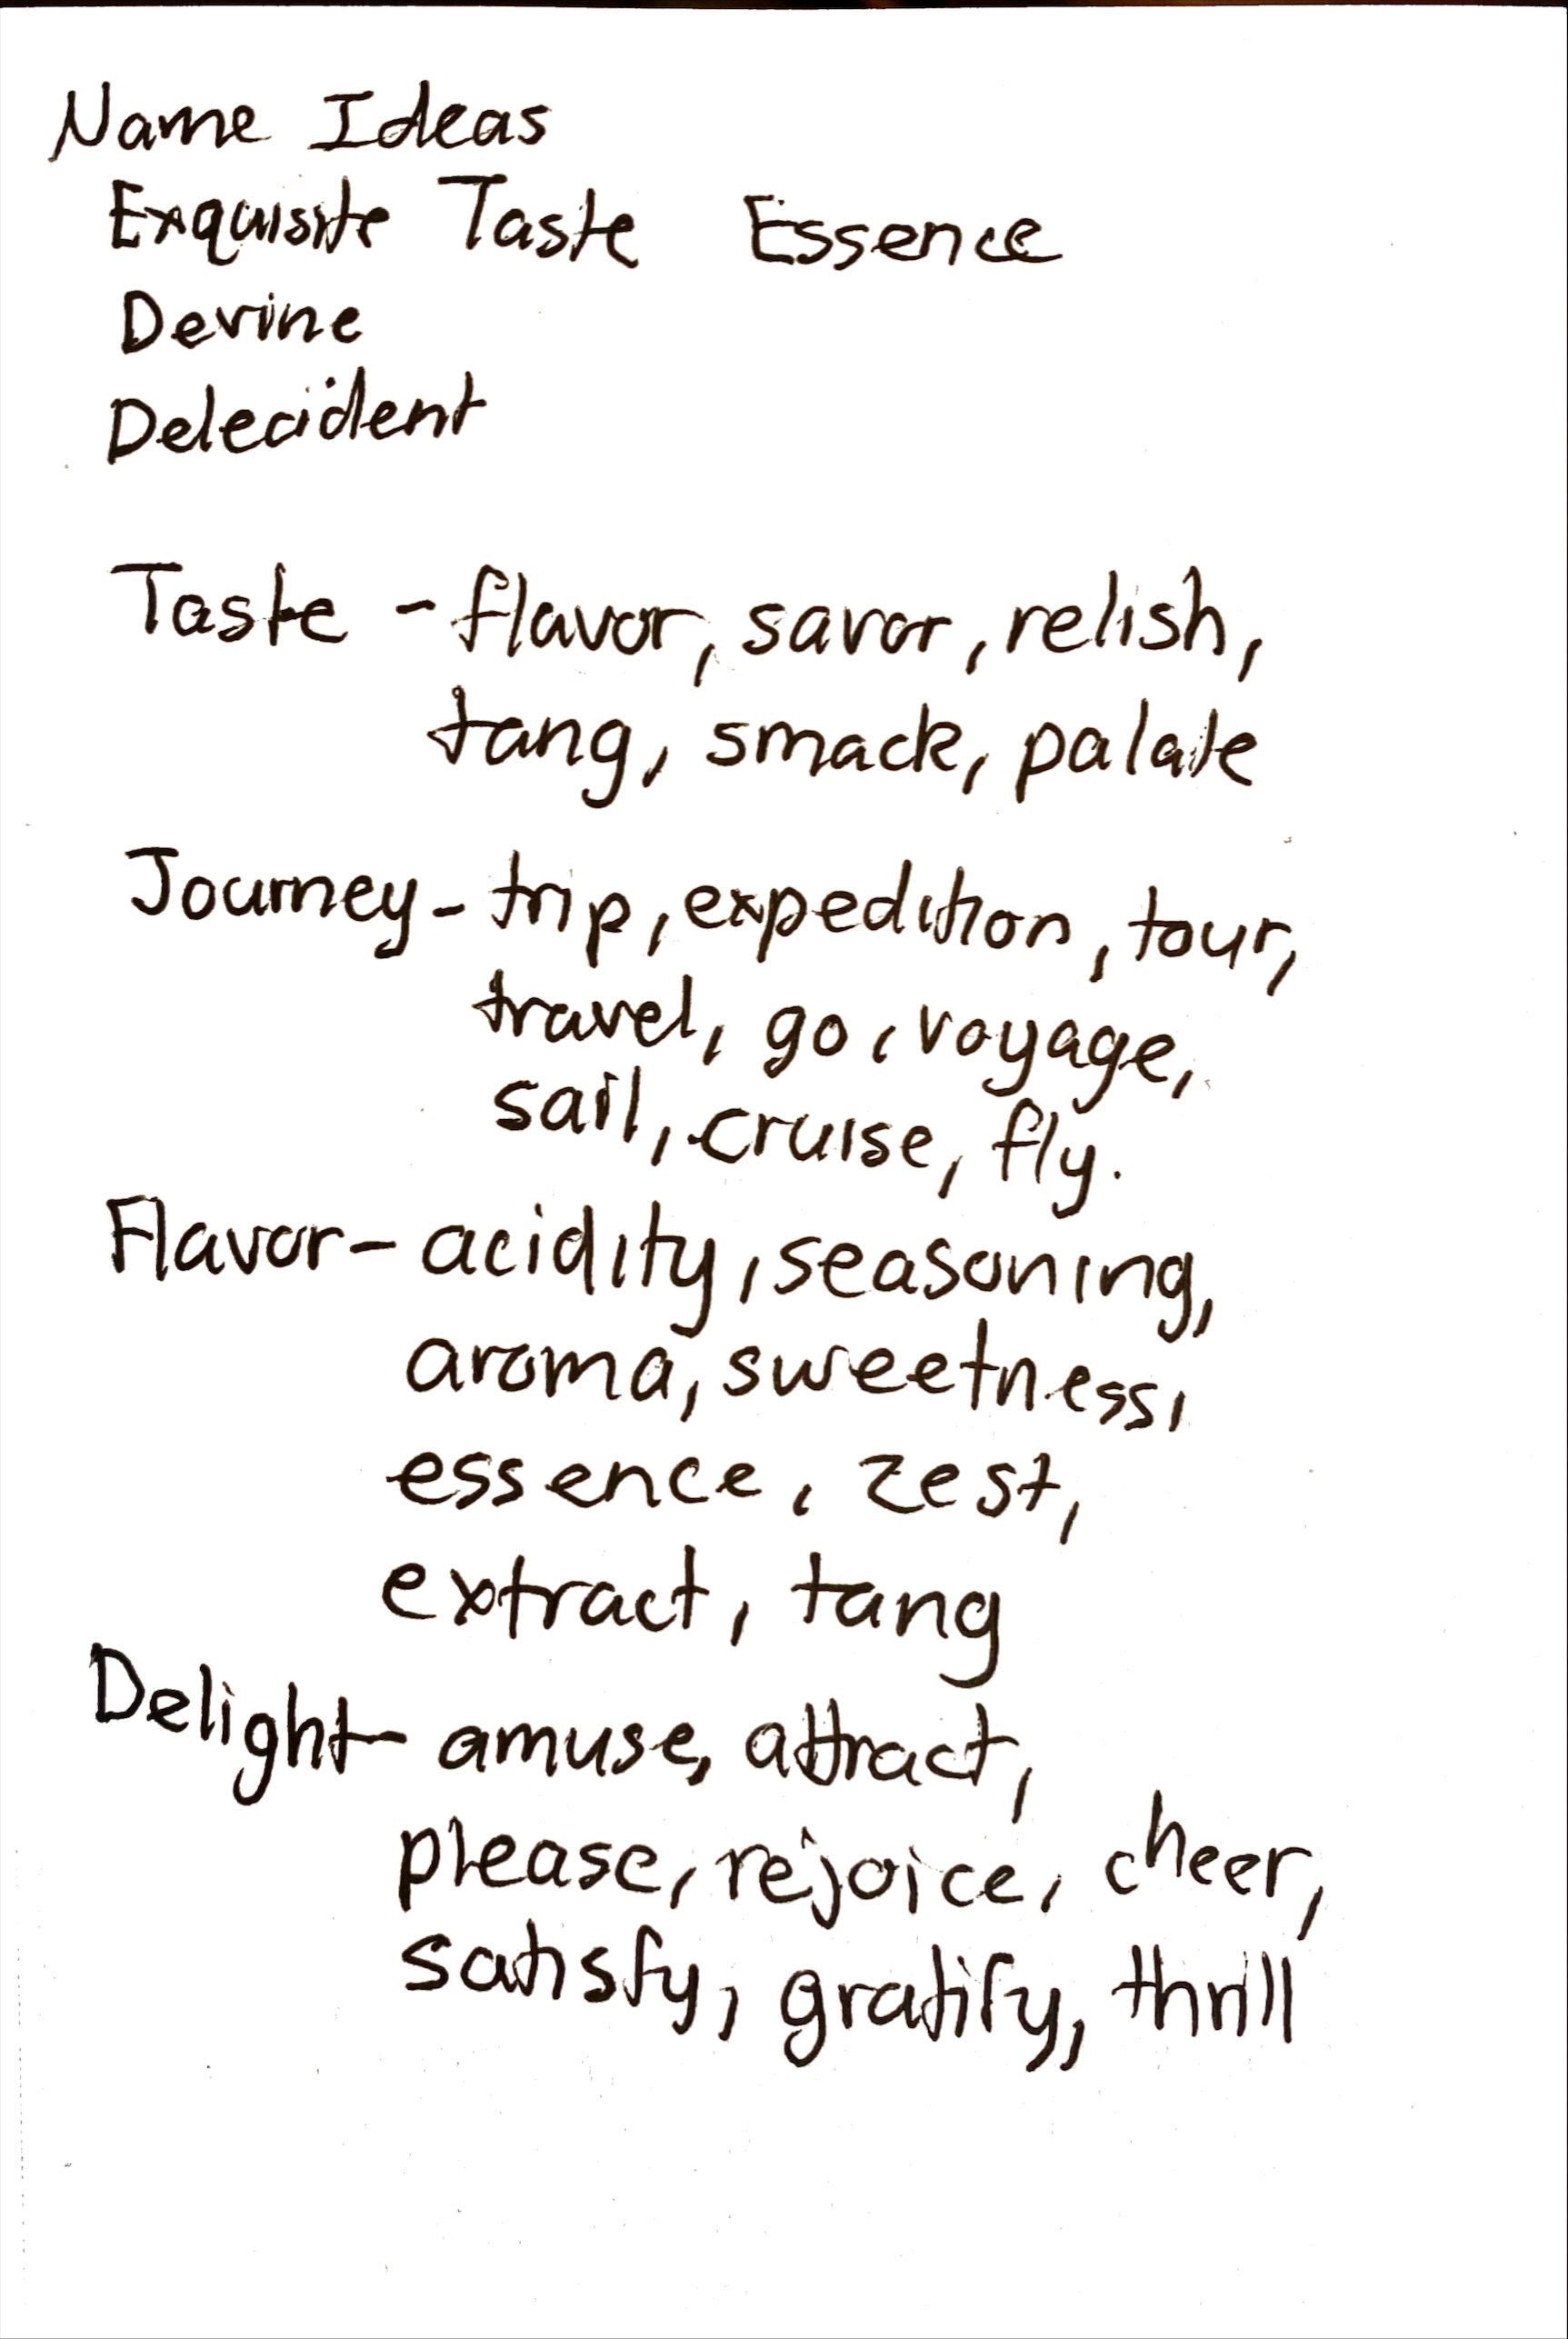 Name Ideas
Exquisite Taste Essence
Devine
Delecident
Taste - flavor, savor, relish,
tang, smack, palate
Journey - trip, expedition, tour,
travel, go, voyage,
sail, cruise, fly.
Flavor - acidity, seasoning,
aroma, sweetness,
essence, zest,
extract, tang
Delight - amuse, attract,
please, rejoice, cheer,
satisfy, gratify, thrill